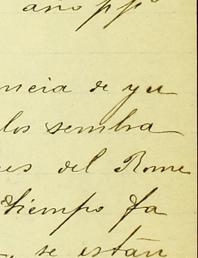 año pp°
ncia de yu
los sembra
es del Rome
tiempo fa
se están